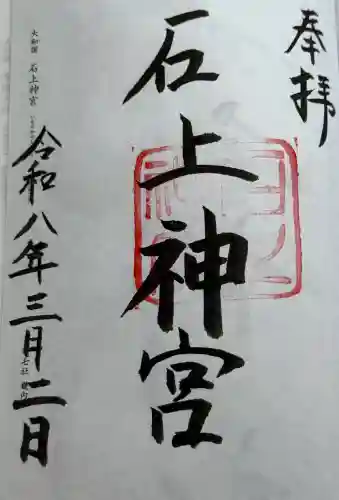 奉拝
石上神宮
令和八年三月二日
大和国 石上神宮